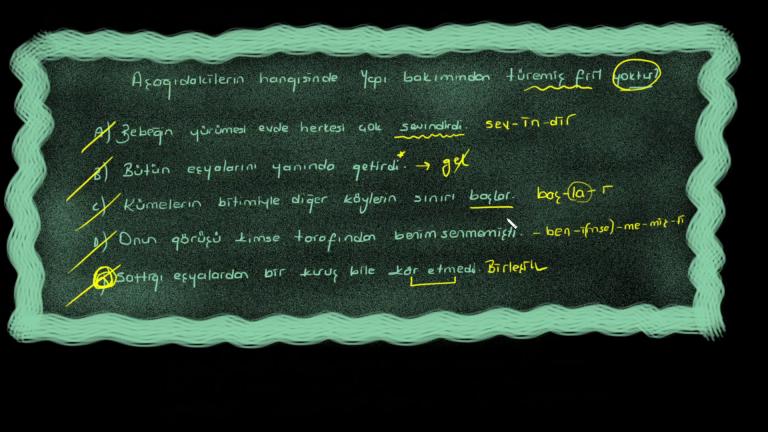 Aşağıdakilerin hangisinde Yapı bakımından türemiş fiil yoktur?
A) Bebeğin yürümesi evde herkesi çok sevindirdi. sev-in-dir
B) Bütün eşyalarını yanında getirdi.* → gel
C) Kümelerin bitimiyle diğer köylerin sınırı başlar. baş-la-r
D) Onun görüşü kimse tarafından benimsenmemişti. - ben-i(mse)-me-miş-ti
Sattığı eşyalardan bir kuruş bile kâr etmedi. Birleşik